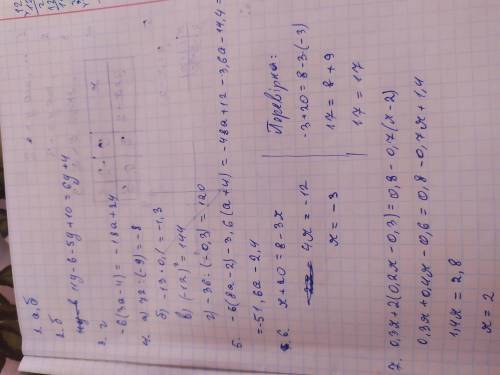 1. а, б
2. б
11y-6-5y+10=6y+4
3. г
-6(3a-4)=-18a+24
4. а) 72:(-9)=-8
б) -13·0,1=-1,3
в) (-12)²=144
г) -36:(-0,3)=120
5. -6(8a-2)-3,6(a+4)=-48a+12-3,6a-14,4=
=-51,6a-2,4
6. x+20=8-3x
4x=-12
x=-3
Перевірка:
-3+20=8-3·(-3)
17=8+9
17=17
7. 0,3x+2(0,2x-0,3)=0,8-0,7(x-2)
0,3x+0,4x-0,6=0,8-0,7x+1,4
1,4x=2,8
x=2